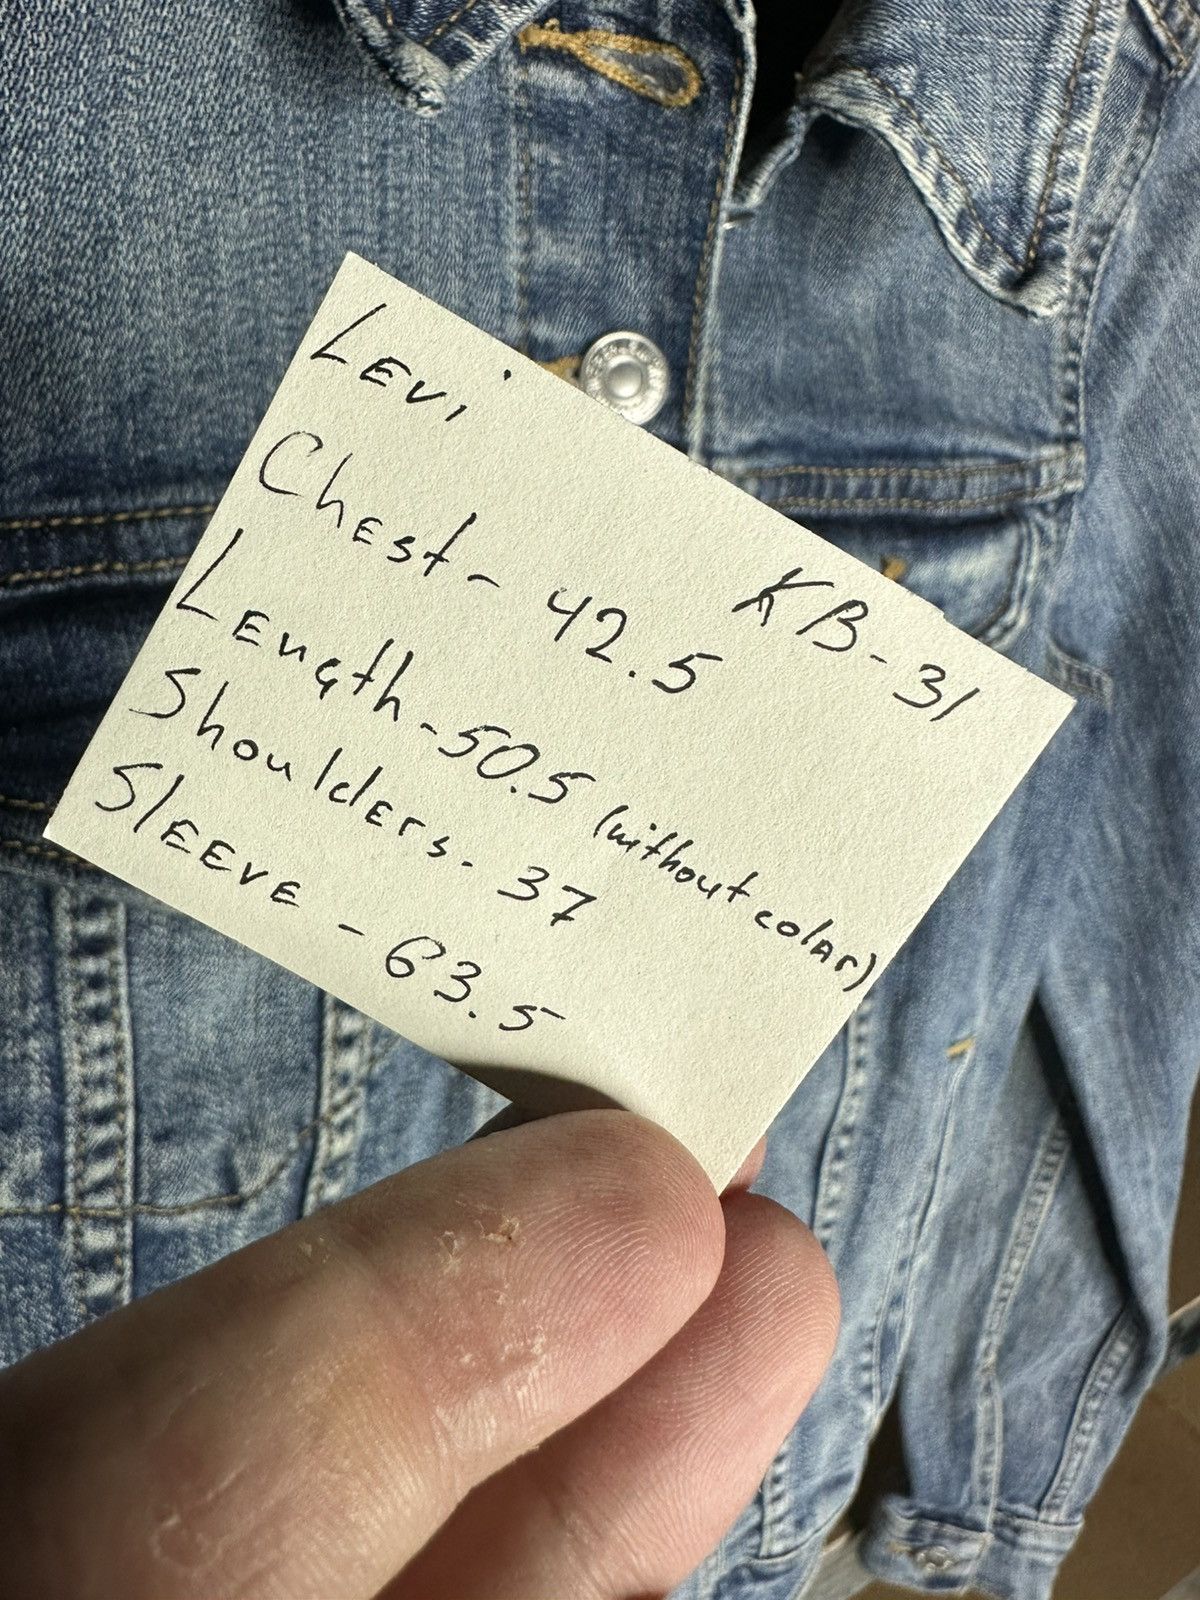 Levi'
KB-31
Chest - 42.5
Length - 50.5 (without colar)
Shoulders - 37
Sleeve - 63.5